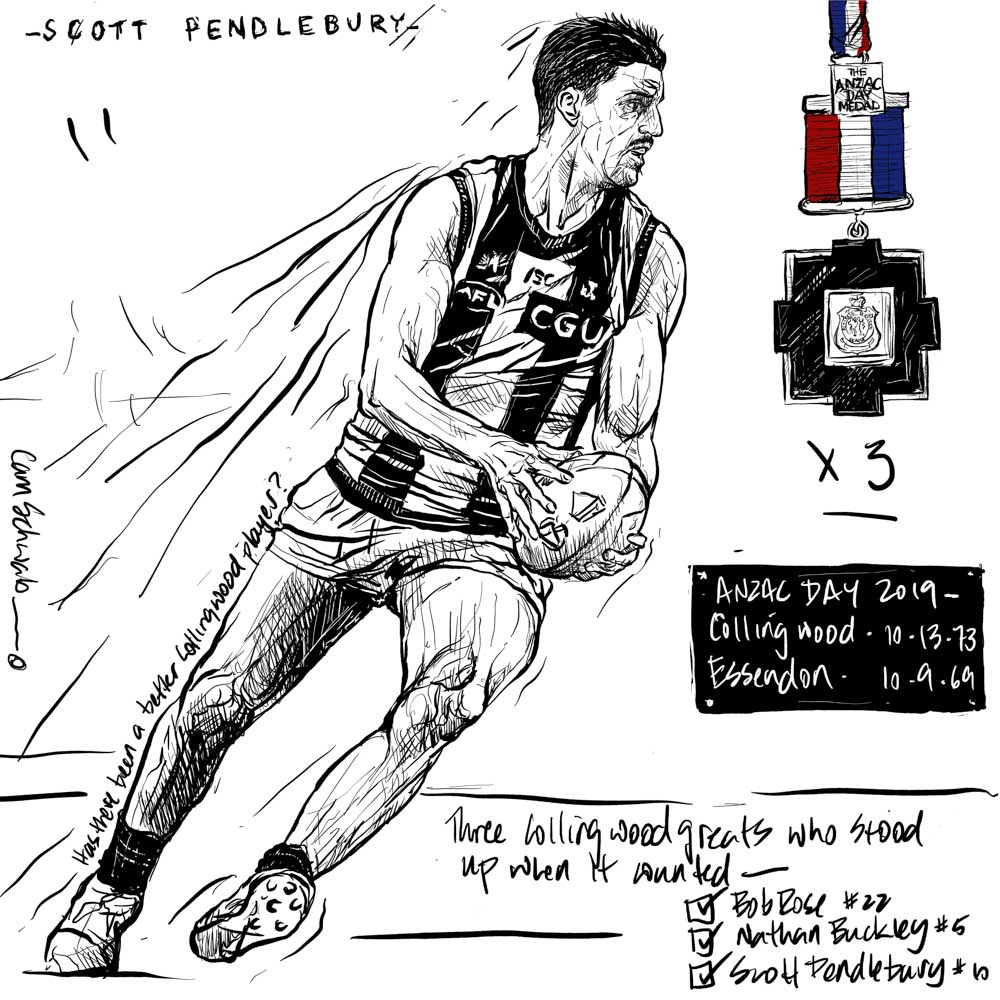 -SCOTT PENDLEBURY-
THE
ANZAC
DAY
MEDAL
ISC
AFL
CGU
x 3
Cam Schwab
Has there been a better Collingwood player?
ANZAC DAY 2019-
Collingwood · 10-13-73
Essendon · 10-9-69
Three Collingwood greats who stood
up when it counted —
Bob Rose #22
Nathan Buckley #5
Scott Pendlebury #10